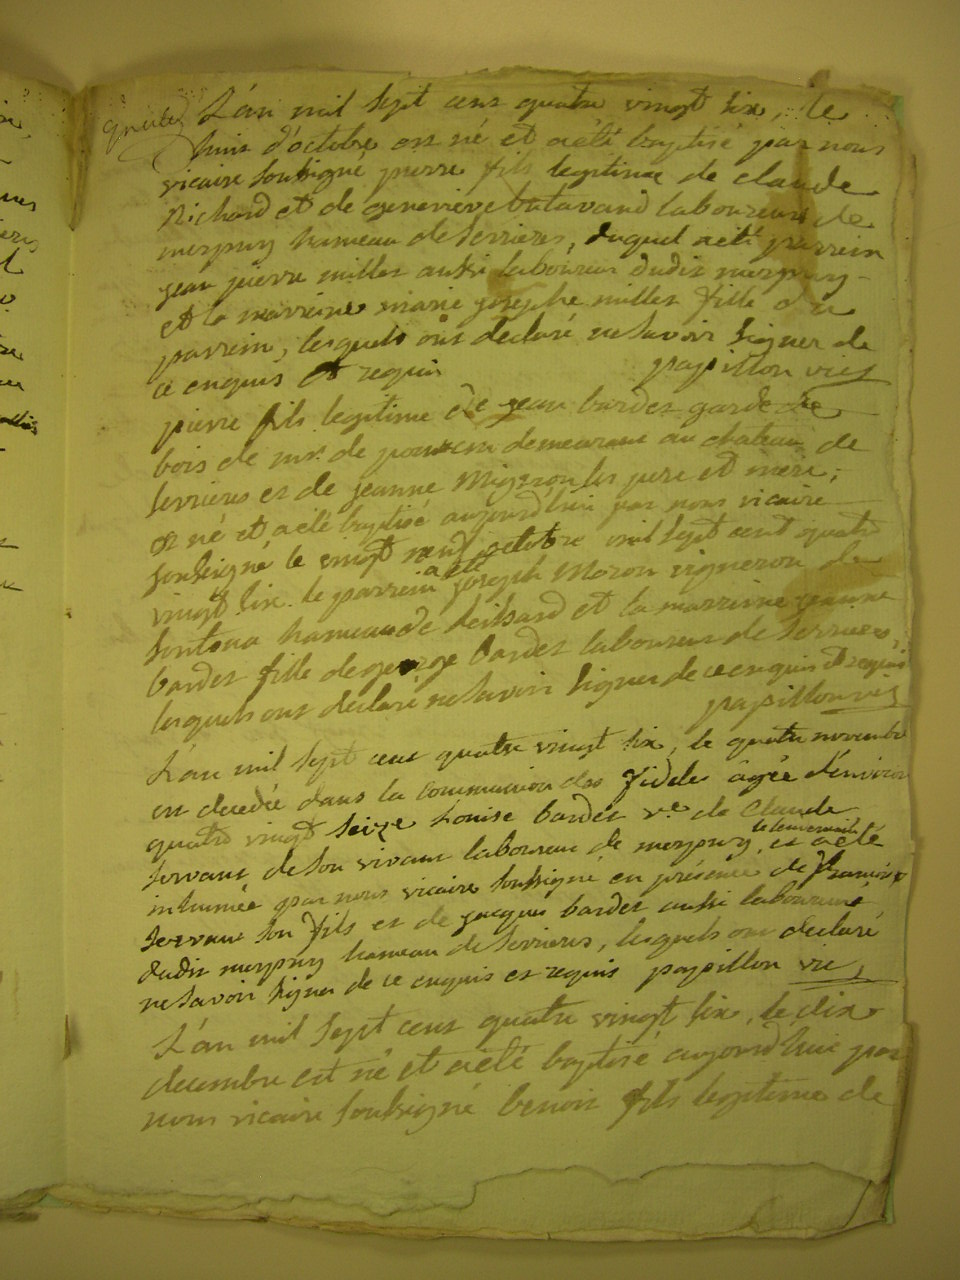 L'an mil sept cent quatre vingt six, le
huit d'octobre est né et a été baptisé par nous
vicaire soussigné pierre fils legitime de claude
Richard et de genevieve batavand laboureur de
merpuy hameau de Serrieres, duquel a été parrein
jean pierre millet aussi laboureur dudit merpuy
et la marreine marie josephe millet fille du
parrein, lesquels ont declaré ne savoir signer de
ce enquis et requis papillon vic
pierre fils legitime de jean bardet garde de
bois de mr. de demeurant au chateau de
serrieres et de jeanne Migeron les pere et mere,
est né et a été baptisé aujourd'hui par nous vicaire
soussigné le vingt neuf octobre mil sept cent quatre
vingt six. le parrein a été joseph Moron vigneron de
hameau de et la marreine jeanne
bardet fille de george bardet laboureur de Serrieres,
lesquels ont declaré ne savoir signer de ce enquis et requis
papillon vic
L'an mil sept cent quatre vingt six, le quatre novembre
est decedée dans la communion des fidels âgée d'environ
quatre vingt seize Louise bardet ve. de Claude
servant de son vivant laboureur de merpuy, et a été le lendemain
inhumée par nous vicaire soussigné en présence de francois
servant son fils et de jacques bardet aussi laboureur
dudit merpuy hameau de Serrieres, lesquels ont declaré
ne savoir signer de ce enquis et requis papillon vic
L'an mil sept cent quatre vingt six, le dix
decembre est né et a été baptisé aujourd'hui par
nous vicaire soussigné benoit fils legitime de